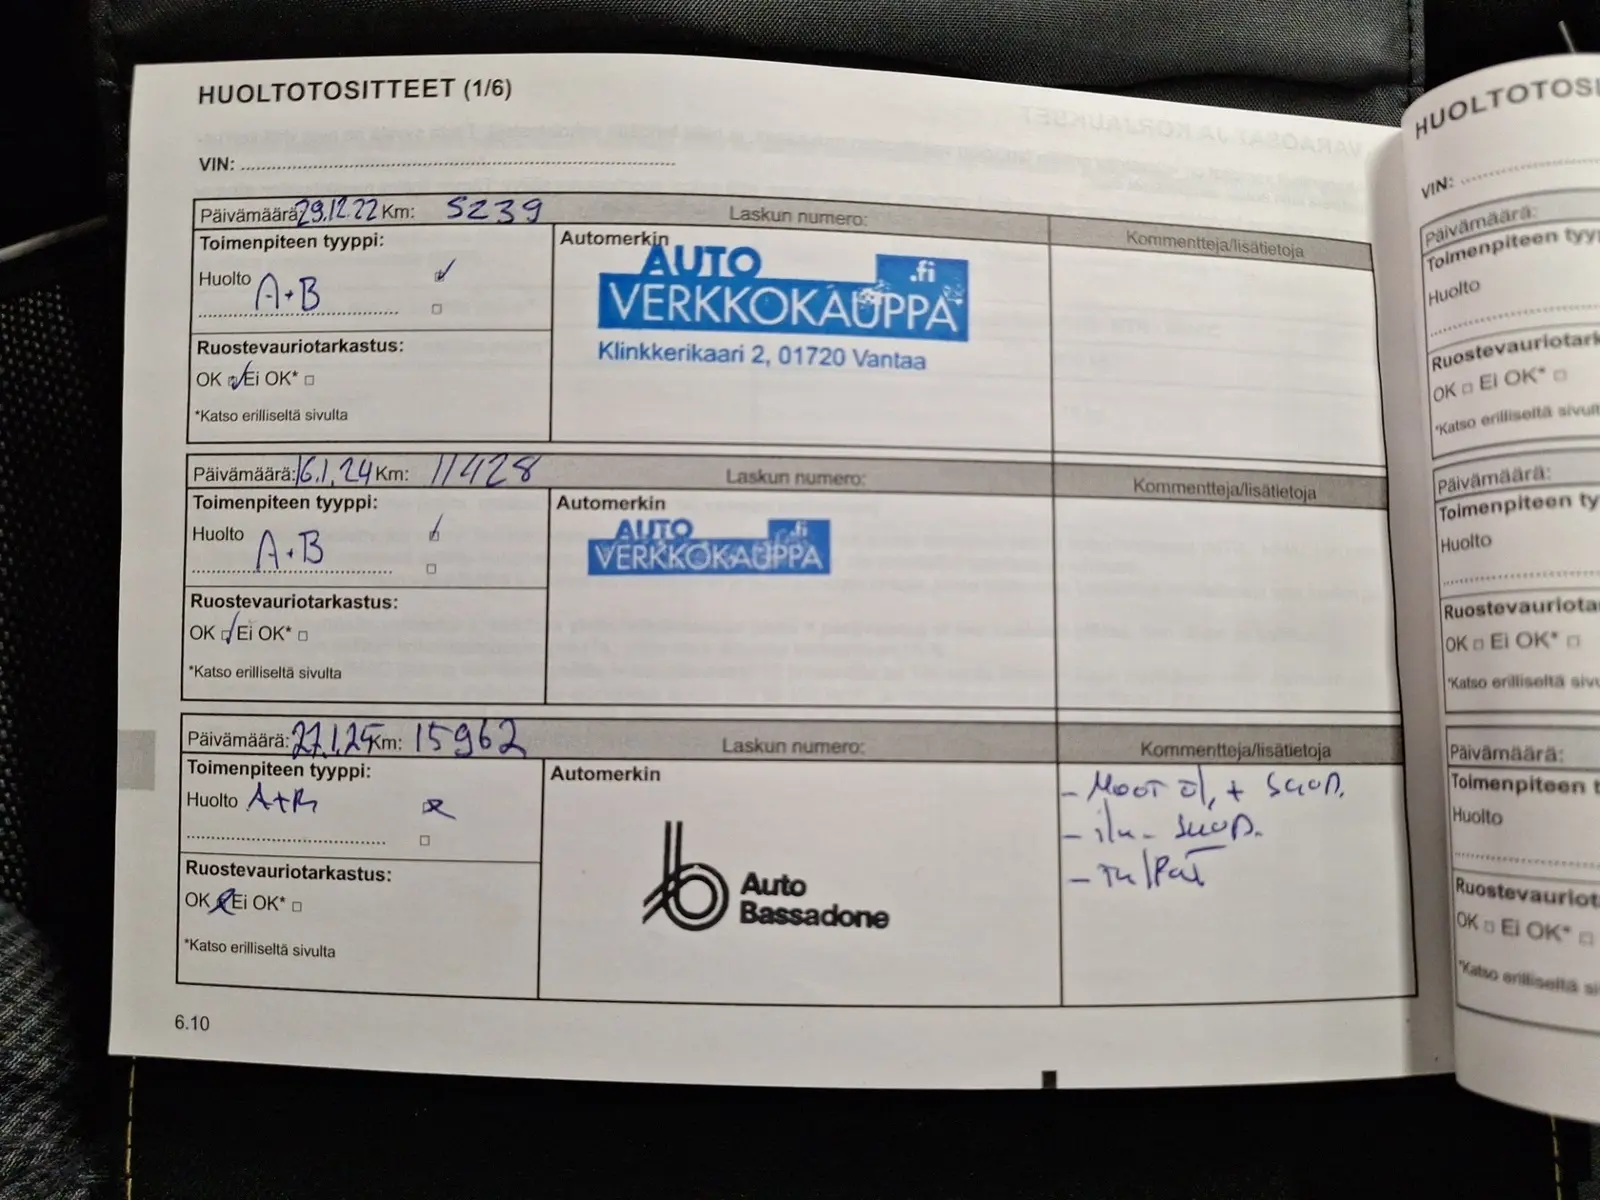 HUOLTOTOSITTEET (1/6)
VIN:
Päivämäärä 29.12.22 Km: 5239 Laskun numero: Kommentteja/lisätietoja
Toimenpiteen tyyppi:
Huolto A+B
Ruostevauriotarkastus:
OK Ei OK*
*Katso erilliseltä sivulta
Automerkin
AUTO
VERKKOKAUPPA .fi
Klinkkerikaari 2, 01720 Vantaa
Päivämäärä: 16.1.24 Km: 11428 Laskun numero: Kommentteja/lisätietoja
Toimenpiteen tyyppi:
Huolto A+B
Ruostevauriotarkastus:
OK Ei OK*
*Katso erilliseltä sivulta
Automerkin
AUTO
VERKKOKAUPPA .fi
Päivämäärä: 27.1.25 Km: 15962 Laskun numero: Kommentteja/lisätietoja
Toimenpiteen tyyppi:
Huolto A+B
Ruostevauriotarkastus:
OK Ei OK*
*Katso erilliseltä sivulta
Automerkin
Auto
Bassadone
- Moot öl, + suod.
- ilm- suod.
6.10
HUOLTOTOSI
VIN:
Päivämäärä:
Toimenpiteen tyyp
Huolto
Ruostevauriotark
OK Ei OK*
*Katso erilliseltä sivult
Päivämäärä:
Toimenpiteen ty
Huolto
Ruostevauriota
OK Ei OK*
*Katso erilliseltä siv
Päivämäärä:
Toimenpiteen t
Huolto
Ruostevauriot
OK Ei OK*
*Katso erilliseltä si